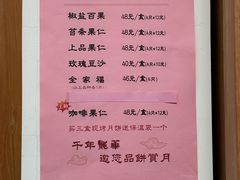 椒盐百果 48元/盒(4只×12元)
苔条果仁 48元/盒(4只×12元)
上品果仁 40元/盒(4只×10元)
玫瑰豆沙 40元/盒(4只×10元)
全家福 46元/盒(4只)
咖啡果仁 48元/盒(4只×12元)
买三盒现烤月饼送保温袋一个
千年龍華
邀您品餅賞月